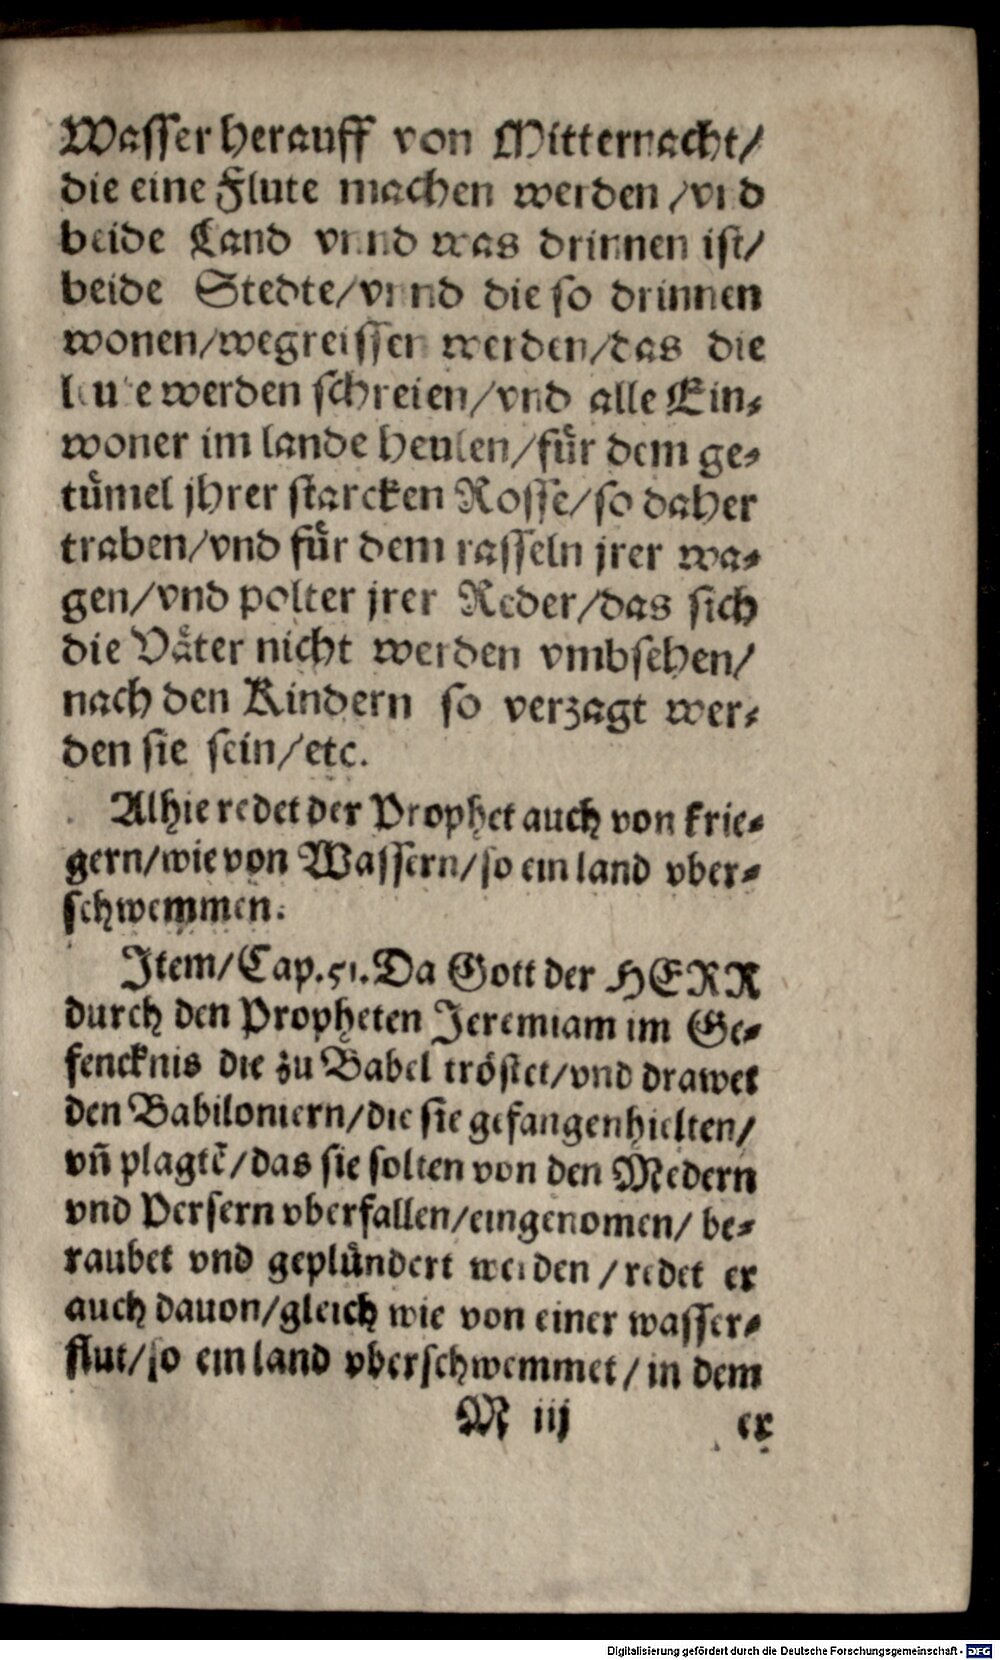 Wasser herauff von Mitternacht/
die eine Flute machen werden /vnd
beide Land vnnd was drinnen ist/
beide Stedte/vnnd die so drinnen
wonen/wegreissen werden/das die
leute werden schreien/vnd alle Ein⸗
woner im lande heulen/für dem ge⸗
tümel jhrer starcken Rosse/so daher
traben/vnd für dem rasseln jrer wa⸗
gen/vnd polter jrer Reder/das sich
die Väter nicht werden vmbsehen/
nach den Kindern so verzagt wer⸗
den sie sein/etc.
Alhie redet der Prophet auch von krie⸗
gern/wie von Wassern/so ein land vber⸗
schwemmen.
Item/Cap.51. Da Gott der HERR
durch den Propheten Jeremiam im Ge⸗
fencknis die zu Babel tröstet/vnd drawet
den Babiloniern/die sie gefangen hielten/
vñ plagtẽ/das sie solten von den Medern
vnd Persern vberfallen/eingenomen/ be⸗
raubet vnd geplündert werden /redet er
auch dauon/gleich wie von einer wasser⸗
flut/so ein land vberschwemmet/in dem
M iij er
Digitalisierung gefördert durch die Deutsche Forschungsgemeinschaft - DFG